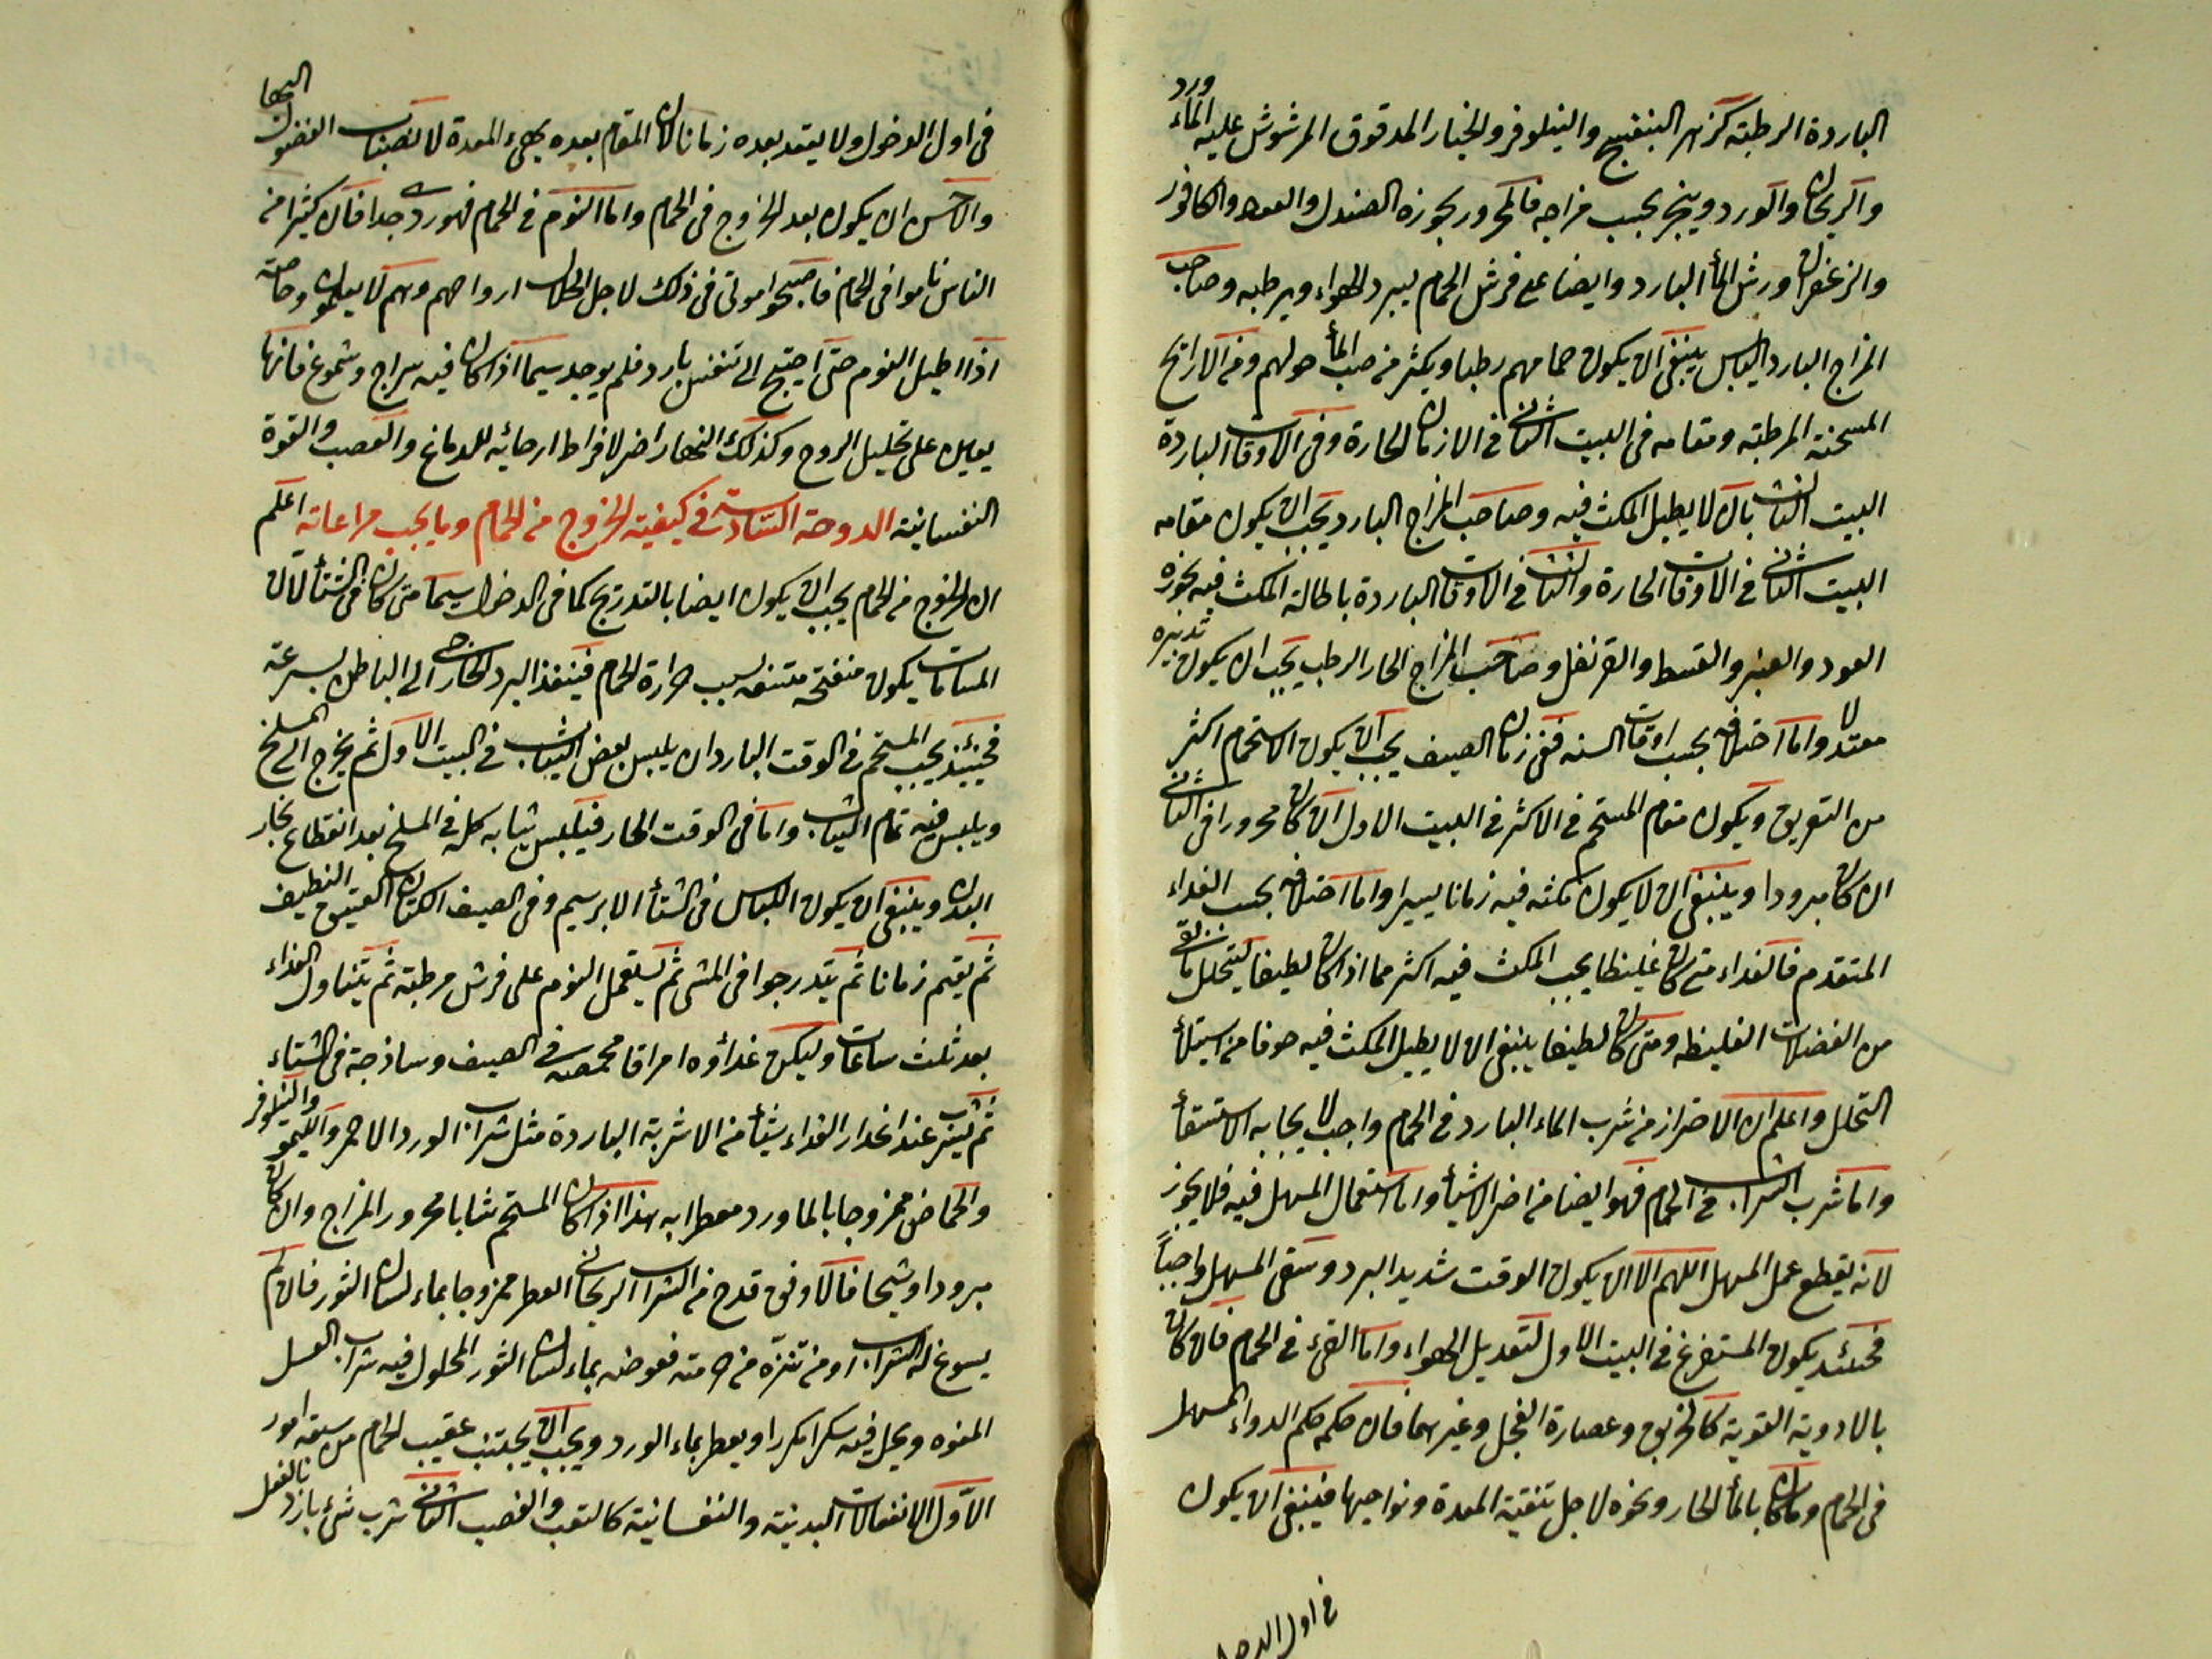 الباردة الرطبة كزهر البنفسج والنيلوفر والخيار المدقوق المرشوش عليه الماء ورد
والريحان والورد ويبخر بحسب مزاجه فالمحرور بخوره الصندل والعود والكافور
والزعفران ورش الماء البارد وايضا على فرش الحمام ليبرد الهواء ويرطبه وصاحب
المزاج البارد اليابس ينبغي ان يكون حمامهم رطبا ويكثر من صب الماء حولهم ومن الارائح
المسخنة المرطبة ومقامه في البيت الثاني في الازمان الحارة وفي الاوقات الباردة
البيت الثالث بان لا يطيل المكث فيه وصاحب المزاج البارد يجب ان يكون مقامه
البيت الثاني في الاوقات الحارة والثالث في الاوقات الباردة باطالة المكث فيه بخوره
العود والعنبر والقسط والقرنفل وصاحب المزاج الحار الرطب يجب ان يكون تدبيره
معتدلا واما اختلافه بحسب اوقات السنه ففي زمان الصيف يجب ان يكون الاستحمام اكثر
من التعريق ويكون مقام المستحم في الاكثر في البيت الاول ان كان محرورا في الثاني
ان كان مبرودا وينبغي ان لا يكون مكثه فيه زمانا يسيرا واما اختلافه بحسب الغداء
المتقدم فالغداء متى كان غليظا يجب المكث فيه اكثر مما اذا كان لطيفا ليتحلل ما بقي
من الفضلات الغليظه ومتى كان لطيفا ينبغي ان لا يطيل المكث فيه خوفا من استيلاء
التحلل واعلم ان الاحتراز من شرب الماء البارد في الحمام واجب لايجابه الاستسقاء
واما شرب الشراب في الحمام فهو ايضا من اضر الاشياء واما استعمال المسهل فيه فلا يجوز
لانه يقطع عمل المسهل اللهم الا ان يكون الوقت شديد البرد وسقي المسهل واجباً
فحينئذ يكون المستفرغ في البيت الاول لتعديل الهواء واما القيء في الحمام فان كان
بالادوية القوية كالخربق وعصارة الفجل وغيرهما فان حكمه حكم الدواء المسهل
في الحمام وما كان بالماء الحار ونحوه لاجل تنقية المعدة ونواحيها فينبغي ان يكون
في اول الدخول
في اول الدخول ولا يقعد بعده زمانا لان المقام بعده يهيء المعدة لانصباب الفضول اليها
والاحسن ان يكون بعد الخروج في الحمام واما النوم في الحمام فهو ردي جدا فان كثيرا من
الناس ناموا في الحمام فاصبحوا موتى في ذلك لاجل انحلال ارواحهم وهم لا يعلمون وخاصة
اذا اطيل النوم حتى احتيج الى تنفس بارد فلم يوجد سيما اذا كان فيه سراج وشموع فانها
يعين على تحليل الروح وكذلك النهار اضر لافراط ارخائه للدماغ والعصب والقوة
النفسانية الدوحة السادسة في كيفية الخروج من الحمام وما يجب مراعاته اعلم
ان الخروج من الحمام يجب ان يكون ايضا بالتدريج كما في الدخول سيما متى كان في الشتاء لان
المسامات يكون منفتحة متسعة بسبب حرارة الحمام فينفذ البرد الخارجي الى الباطن بسرعة
فحينئذ يجب المستحم في الوقت البارد ان يلبس بعض الثياب في البيت الاول ثم يخرج الى المسلخ
ويلبس فيه تمام الثياب واما في الوقت الحار فيلبس ثيابه كله في المسلخ بعد انقطاع بخار
البدن وينبغي ان يكون اللباس في الشتاء الابريسم وفي الصيف الكتان العتيق النظيف
ثم يقيم زمانا ثم يتدرجوا في المشي ثم يستعمل النوم على فرش مرطبة ثم يتناول الغداء
بعد ثلث ساعات وليكن غداؤه امراقا محمصه في الصيف وساذجة في الشتاء
ثم يشرب عند انحدار الغداء شيئا من الاشربة الباردة مثل شراب الورد الاحمر والليمو والنيلوفر
والحماض ممزوجا بالماورد معطرا به هذا اذا كان المستحم شابا محرور المزاج وان كان
مبرودا وشيخا فالاوفق قدح من الشراب الريحاني العطر ممزوجا بماء لسان الثور فان لم
يسوغ له الشراب او من تنزه من حرمته فعوضه بماء لسان الثور المحلول فيه شراب العسل
المنوه ويحل فيه سكرا مكررا ويعطر بماء الورد ويجب ان يجتنب عقيب الحمام من ستة امور
الاول الانفعالات البدنية والنفسانية كالتعب والغضب الثاني شرب شيء بارد بالفعل